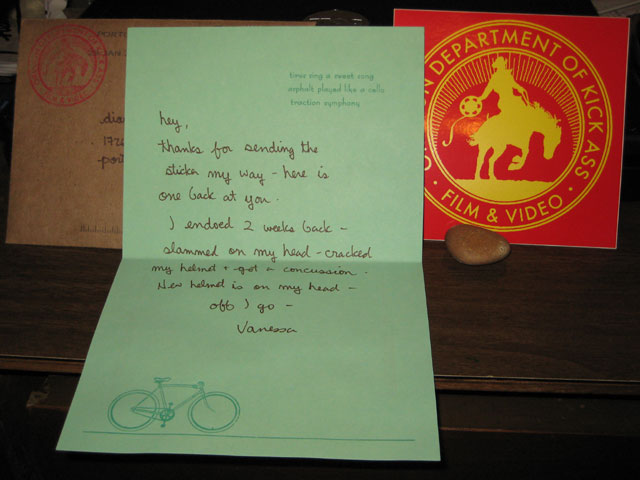 PORTL
JAN 2
dia
172
port
tires sing a sweet song
asphalt played like a cello
traction symphony
hey,
thanks for sending the
sticker my way - here is
one back at you.
I endoed 2 weeks back -
slammed on my head - cracked
my helmet + got a concussion.
New helmet is on my head -
off I go -
Vanessa
N DEPARTMENT OF KICK ASS
· FILM & VIDEO ·